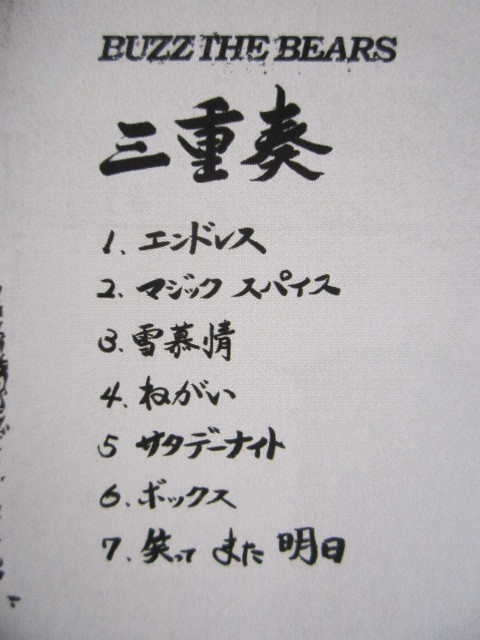 BUZZ THE BEARS
三重奏
1. エンドレス
2. マジック スパイス
3. 雪慕情
4. ねがい
5 サタデーナイト
6. ボックス
7. 笑って また 明日